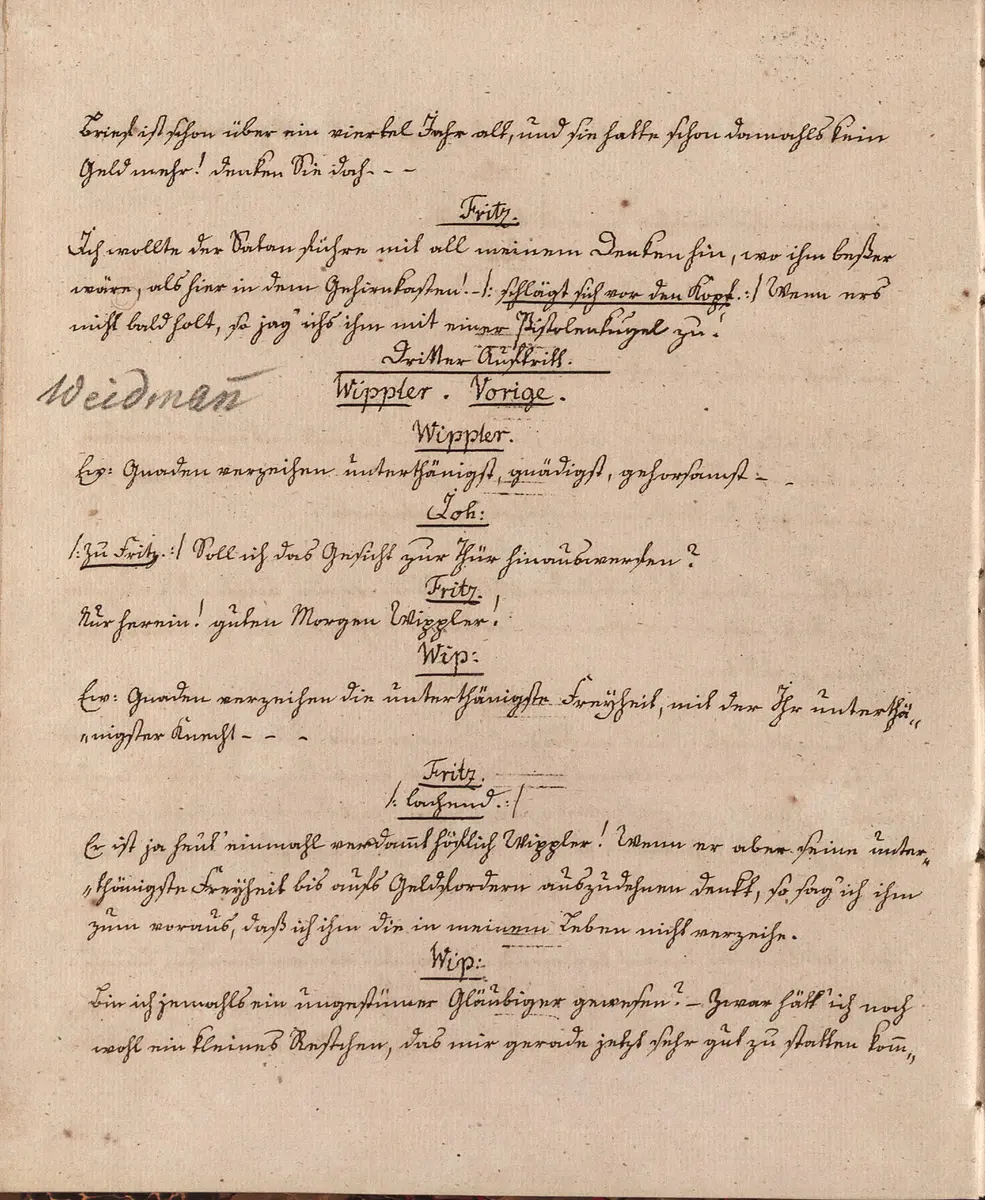 Brief ist schon über ein viertel Jahr alt, und sie hatte schon damahls kein
Geld mehr! denken Sie doch - - -
Fritz.
Ich wollte der Satan führe mit all meinem Denken hin, wo ihm beßer
wäre, als hier in dem Gehirnkasten! - /: schlägt sich vor den Kopf. :/ Wenn ers
nicht bald holt, so jag' ichs ihm mit einer Pistolenkugel zu!
Dritter Auftritt.
Weidmann̄
Wippler. Vorige.
Wippler.
Ew: Gnaden verzeihen unterthänigst, gnädigst, gehorsamst - -
Joh:
/: zu Fritz. :/ Soll ich das Gesicht zur Thür hinauswerfen?
Fritz.
Nur herein! guten Morgen Wippler!
Wip:
Ew: Gnaden verzeihen die unterthänigste Freyheit, mit der Ihr unterthä„
„nigster Knecht - - -
Fritz.
/: lachend. :/
Er ist ja heut' einmahl verdammt höflich Wippler! Wenn er aber seine unter„
„thänigste Freyheit bis aufs Geldfordern auszudehnen denkt, so sag' ich ihm
zum voraus, daß ich ihm die in meinem Leben nicht verzeihe.
Wip:
Bin ich jemahls ein ungestümer Gläubiger gewesen? - Zwar hätt' ich noch
wohl ein kleines Restchen, das mir gerade jetzt sehr gut zu statten kom̄„